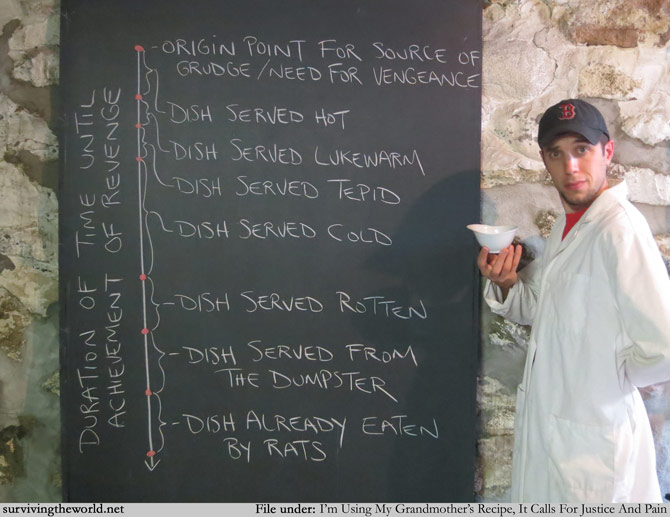 ORIGIN POINT FOR SOURCE OF
GRUDGE/NEED FOR VENGEANCE
DISH SERVED HOT
DISH SERVED LUKEWARM
DISH SERVED TEPID
DISH SERVED COLD
DISH SERVED ROTTEN
DISH SERVED FROM
THE DUMPSTER
DISH ALREADY EATEN
BY RATS
DURATION OF TIME UNTIL
ACHIEVEMENT OF REVENGE
B
survivingtheworld.net
File under: I'm Using My Grandmother's Recipe, It Calls For Justice And Pain